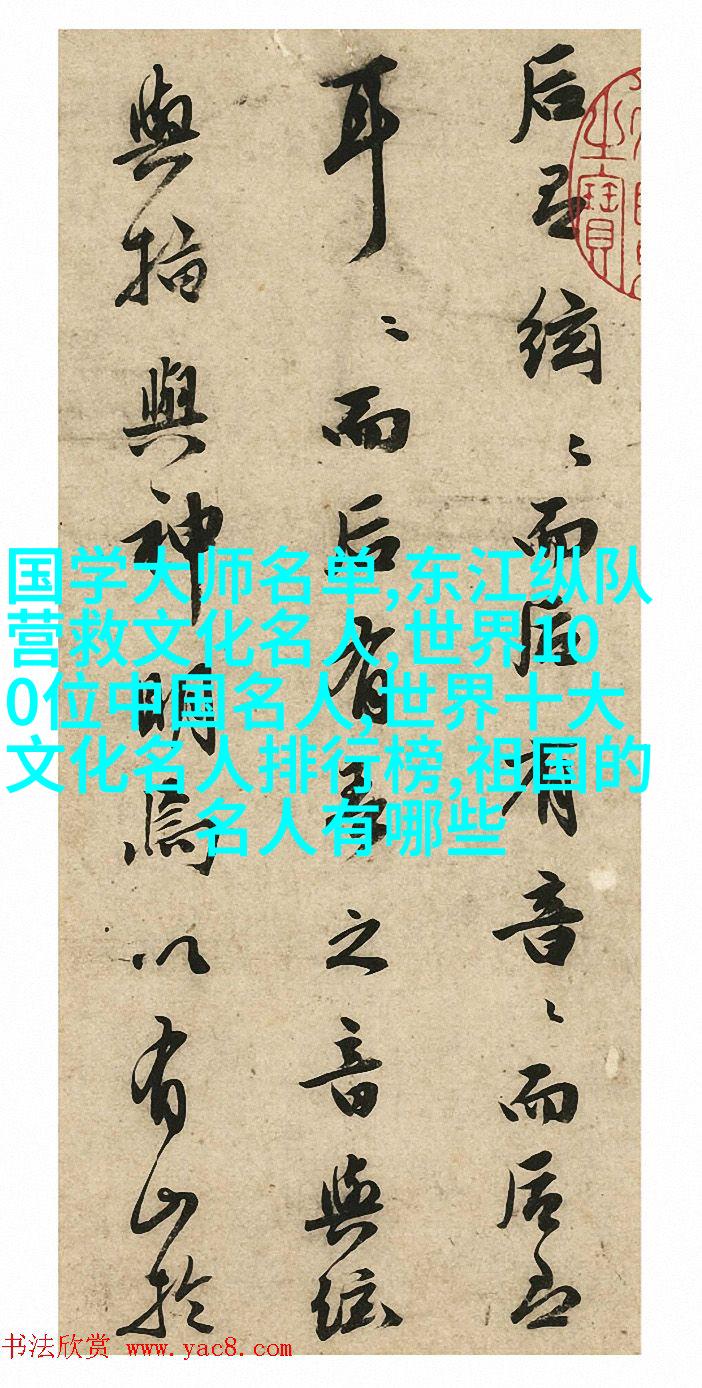 后絃〻而后有音〻而后
耳〻而后有之音與絃
與指與神明焉以有山於
之寶
国学大师名单,东江纵队
营救文化名人,世界10
0位中国名人,世界十大
文化名人排行榜,祖国的
名人有哪些
书法欣赏 www.yac8.com